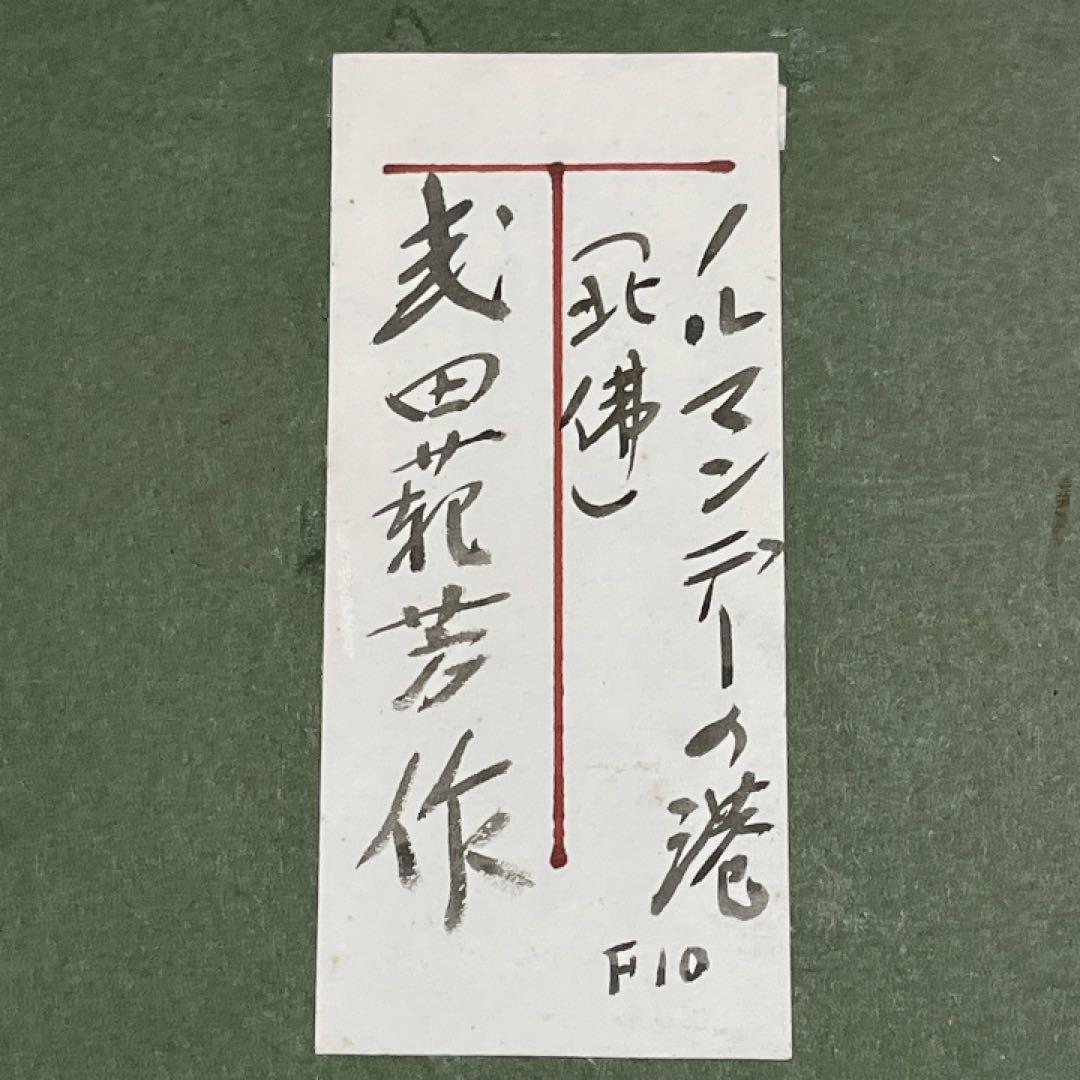 ノルマンデーの港
(北佛)
F10
武田範芳作